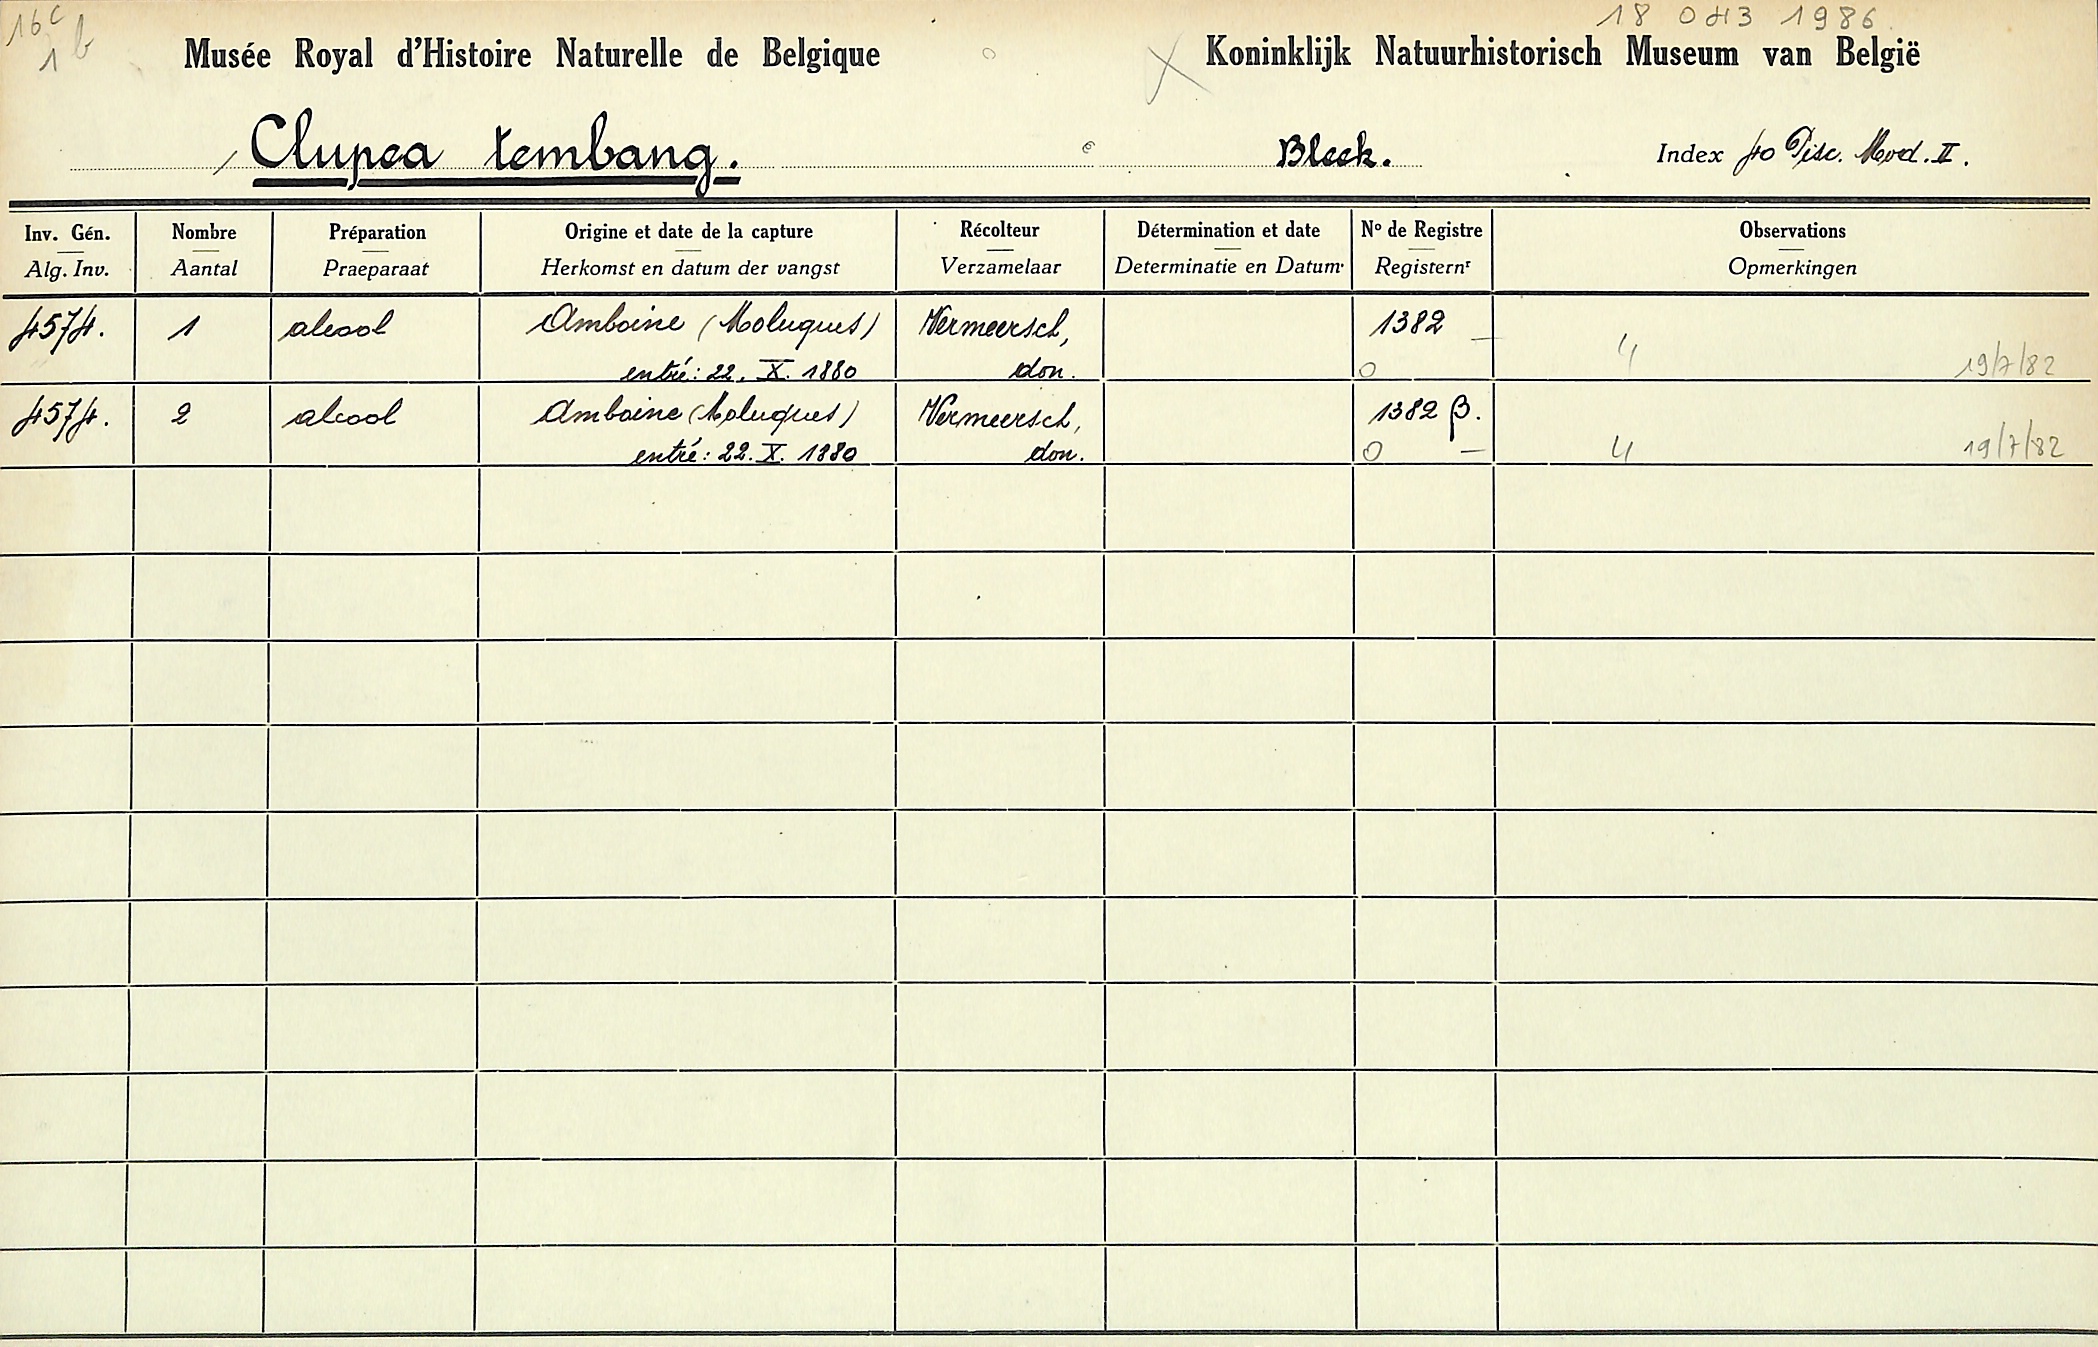 16c
1b
18 043 1986
Musée Royal d'Histoire Naturelle de Belgique
Koninklijk Natuurhistorisch Museum van België
Clupea tembang.
Bleek.
Index 40 Pisc. II.
Inv. Gén.
Alg. Inv.
Nombre
Aantal
Préparation
Praeparaat
Origine et date de la capture
Herkomst en datum der vangst
Récolteur
Verzamelaar
Détermination et date
Determinatie en Datum
Nº de Registre
Registernʳ
Observations
Opmerkingen
4574. 1 alcool Amboine (Moluques) Vermeersch, 1382 –
entré: 22. X. 1880 don. 0 4 19/7/82
4574. 2 alcool Amboine (Moluques) Vermeersch, 1382 β.
entré: 22. X. 1880 don. 0 – 4 19/7/82